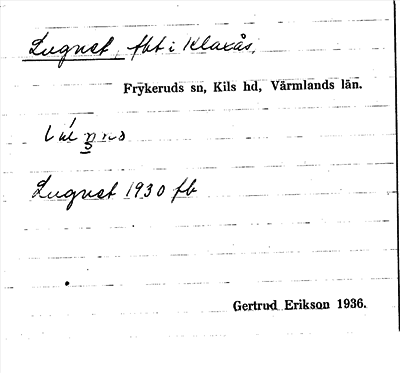 Lugnet, fbt i Klaxås,
Frykeruds sn, Kils hd, Värmlands län.
Lugnet 1930 fb
Gertrud Erikson 1936.